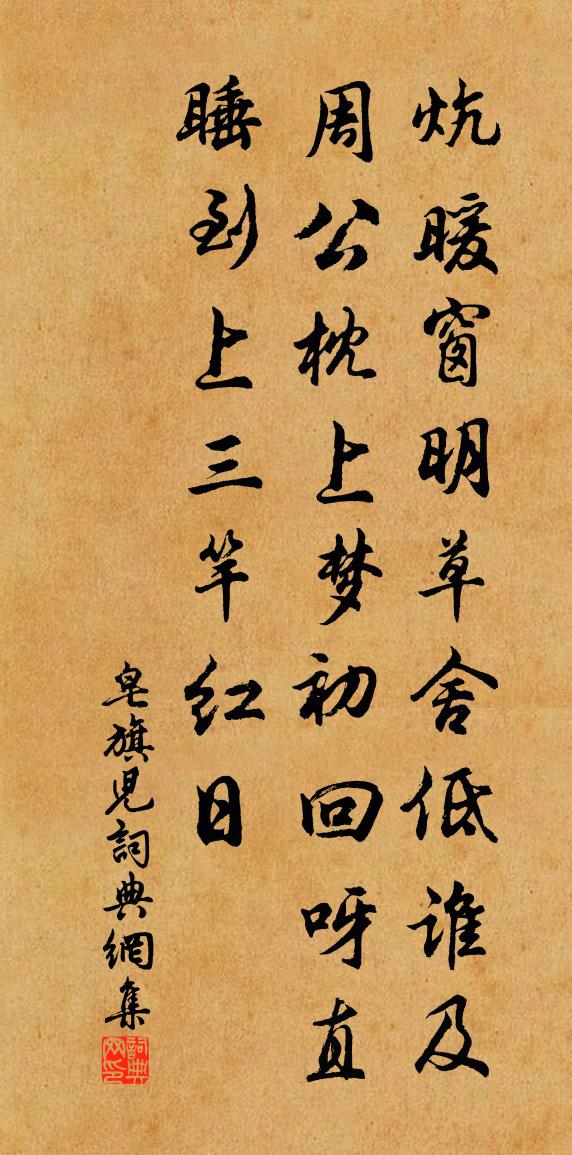 炕暖窗明草舍低谁及
周公枕上梦初回呀直
睡到上三竿红日
皂旗児詞典網集
詞典
网印